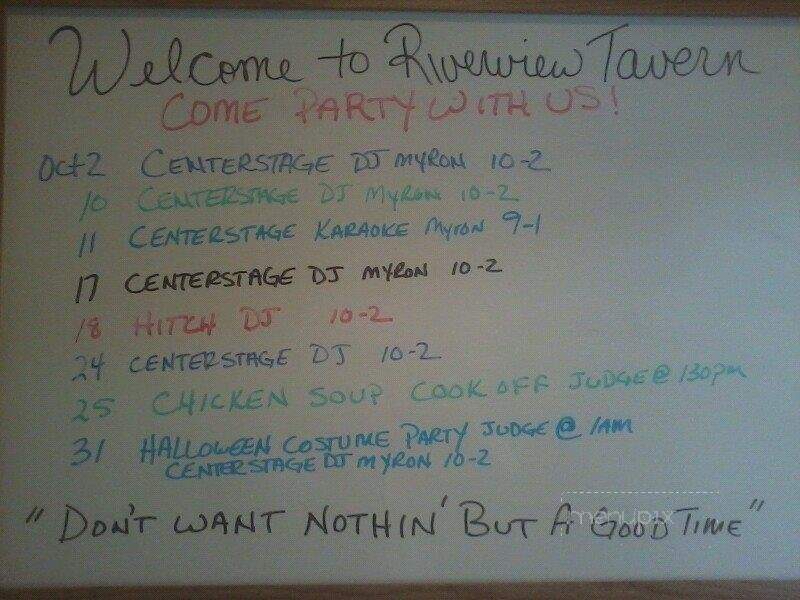 Welcome to Riverview Tavern
COME PARTY WITH US!
Oct 2 CENTERSTAGE DJ MYRON 10-2
10 CENTERSTAGE DJ MYRON 10-2
11 CENTERSTAGE KARAOKE MYRON 9-1
17 CENTERSTAGE DJ MYRON 10-2
18 HITCH DJ 10-2
24 CENTERSTAGE DJ 10-2
25 CHICKEN SOUP COOK OFF JUDGE @ 130pm
31 HALLOWEEN COSTUME PARTY JUDGE @ 1AM
CENTERSTAGE DJ MYRON 10-2
"DON'T WANT NOTHIN' BUT A GOOD TIME"
menupix